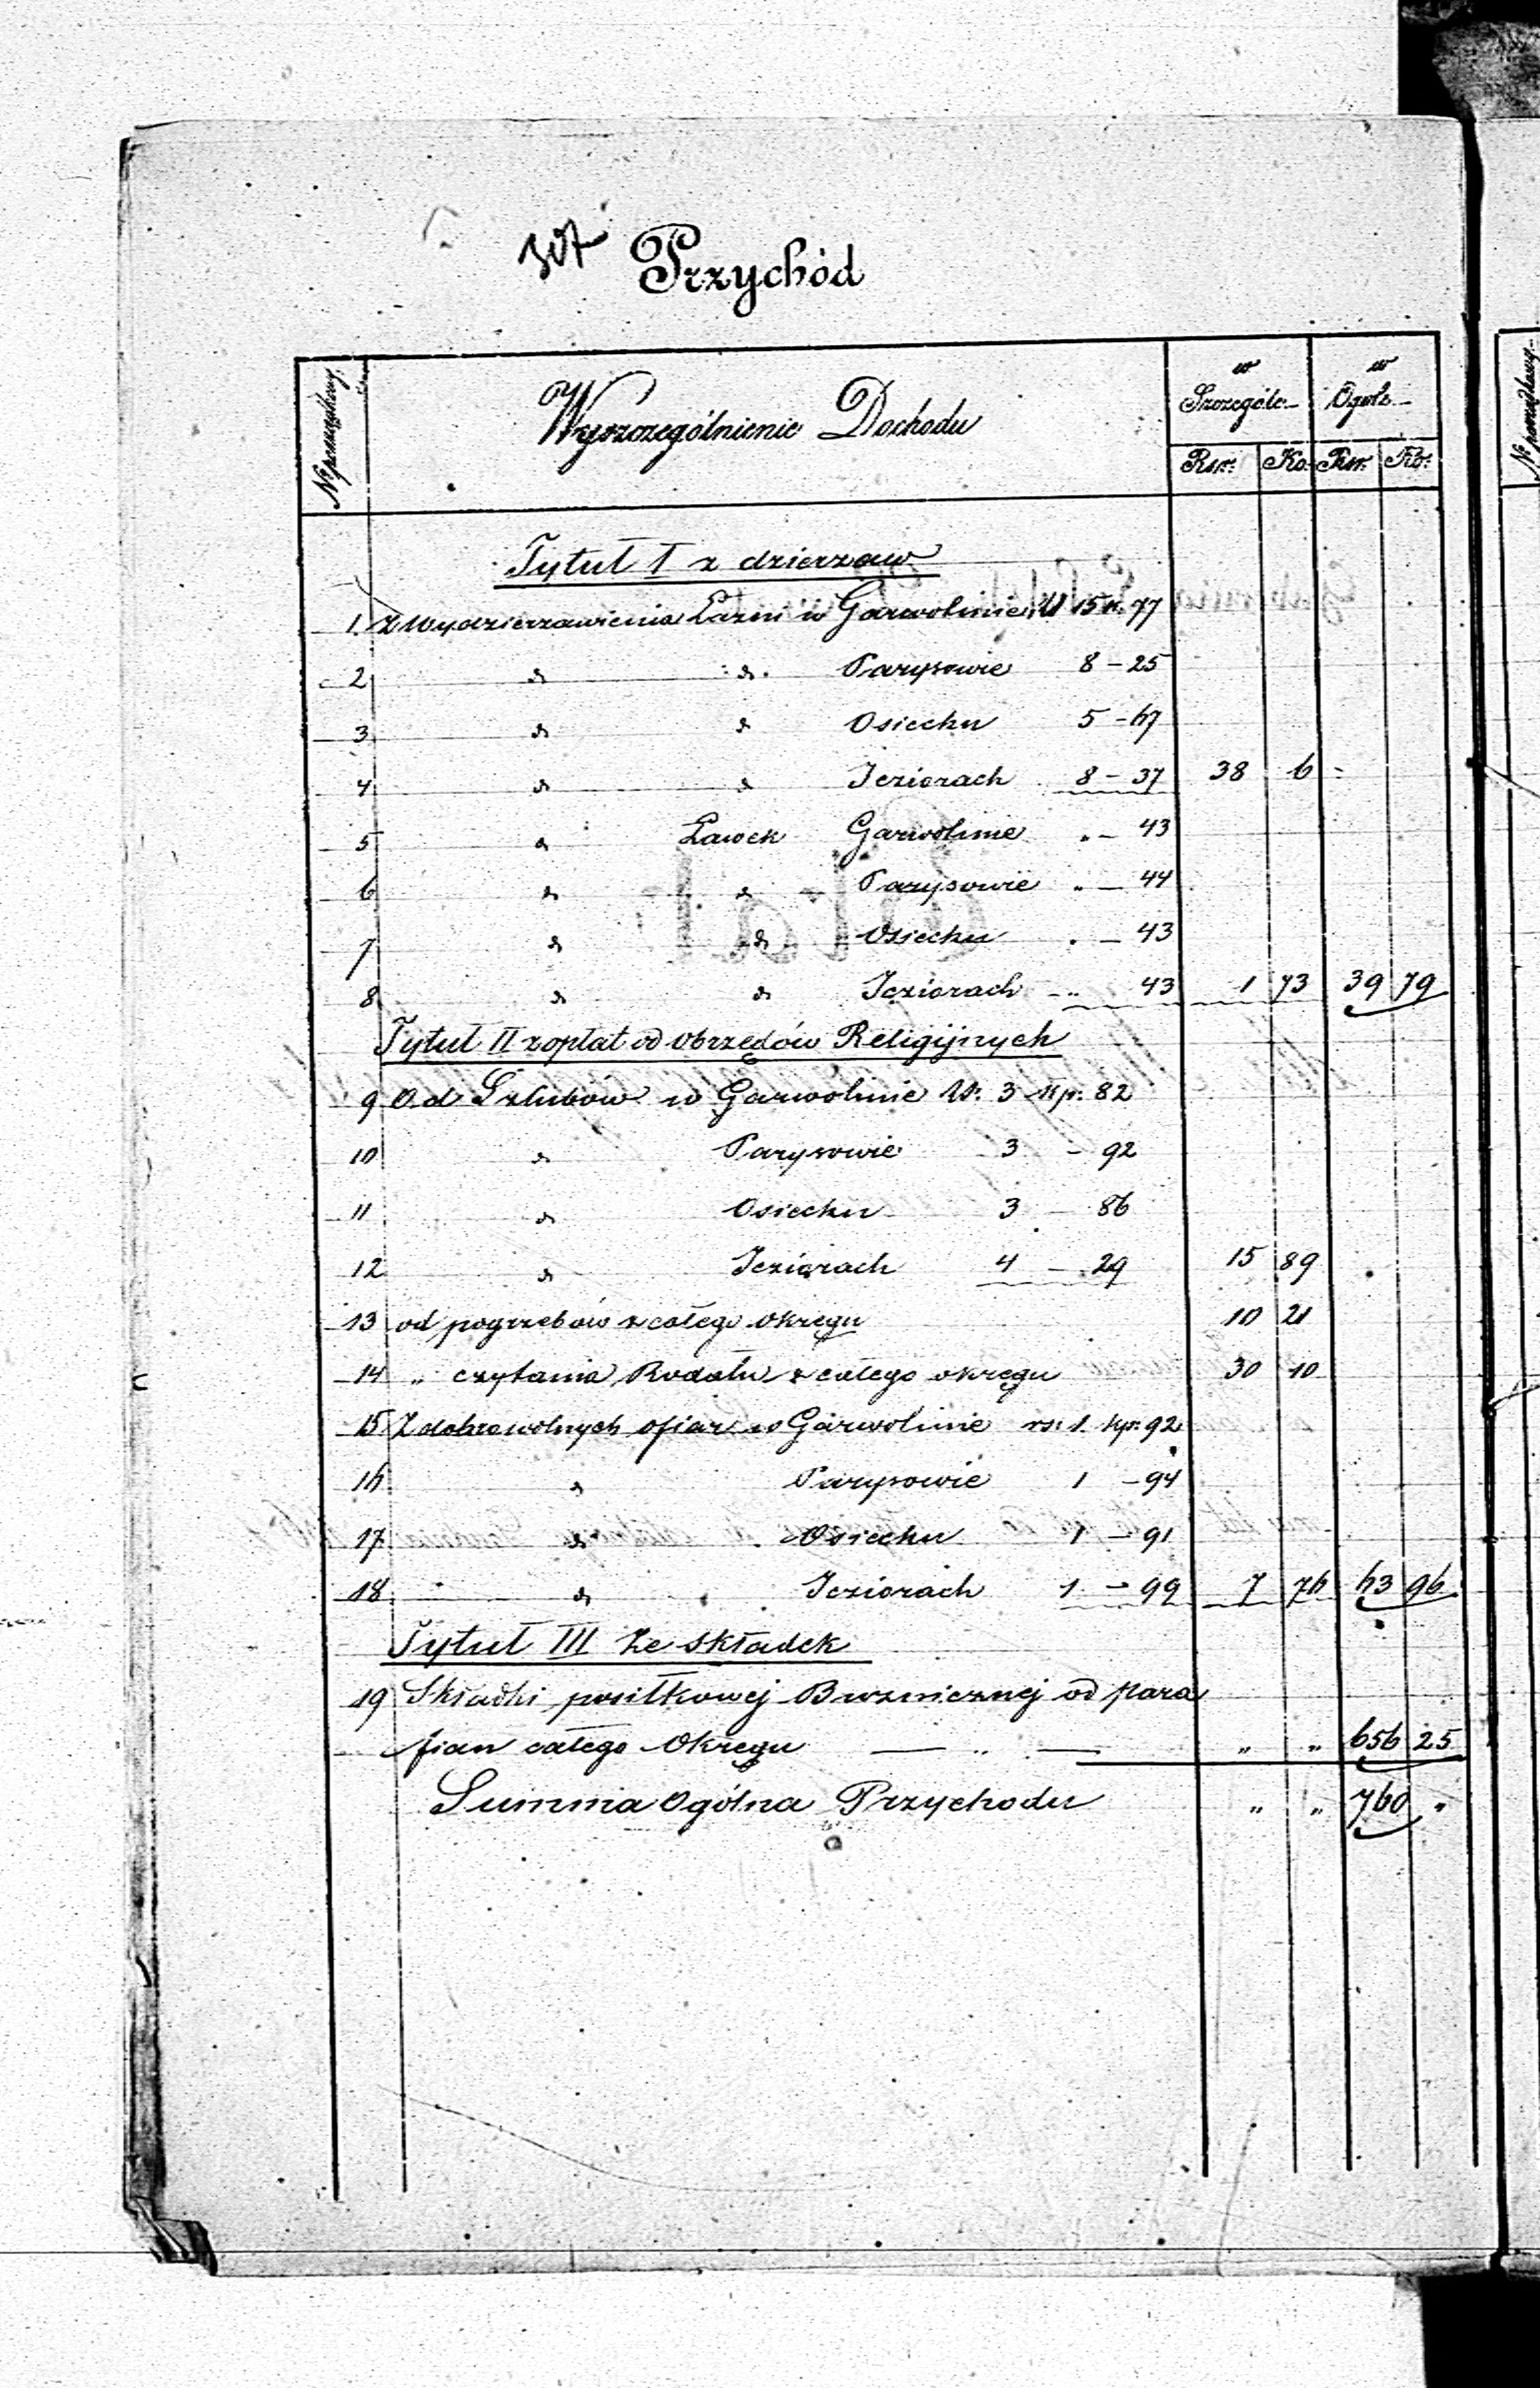 307 Przychód
№ porządkowy
Wyszczególnienie Dochodu
w Szczególe
w Ogóle
Rsr. Ko. Rsr. Ko.
Tytuł I z dzierzaw
1. z Wydzierzawienia Łazni w Garwolinie 15 k. 77
2 " " Parysowie 8 – 25
3 " " Osiecku 5 – 67
4 " " Jeziorach 8 – 37 38 6
5 " Ławek Garwolinie " – 43
6 " " Parysowie " – 44
7 " " Osiecku " – 43
8 " " Jeziorach – " 43 1 73 39 79
Tytuł II z opłat od Obrzędów Religijnych
9 Od Szlubów w Garwolinie rs. 3 kp. 82
10 " Parysowie 3 – 92
11 " Osiecku 3 – 86
12 " Jeziorach 4 – 29 15 89
13 od pogrzebów z całego okręgu 10 21
14 " czytania Rodału z całego okręgu 30 10
15 Z dobrowolnych ofiar w Garwolinie rs. 1. kp. 92
16 " Parysowie 1 – 94
17 " Osiecku 1 – 91
18 " Jeziorach 1 – 99 7 76 63 96
Tytuł III Ze składek
19 Składki posiłkowej Bużnicznej od para
fian całego Okręgu — " — " " 656 25
Summa Ogólna Przychodu " " 760 "